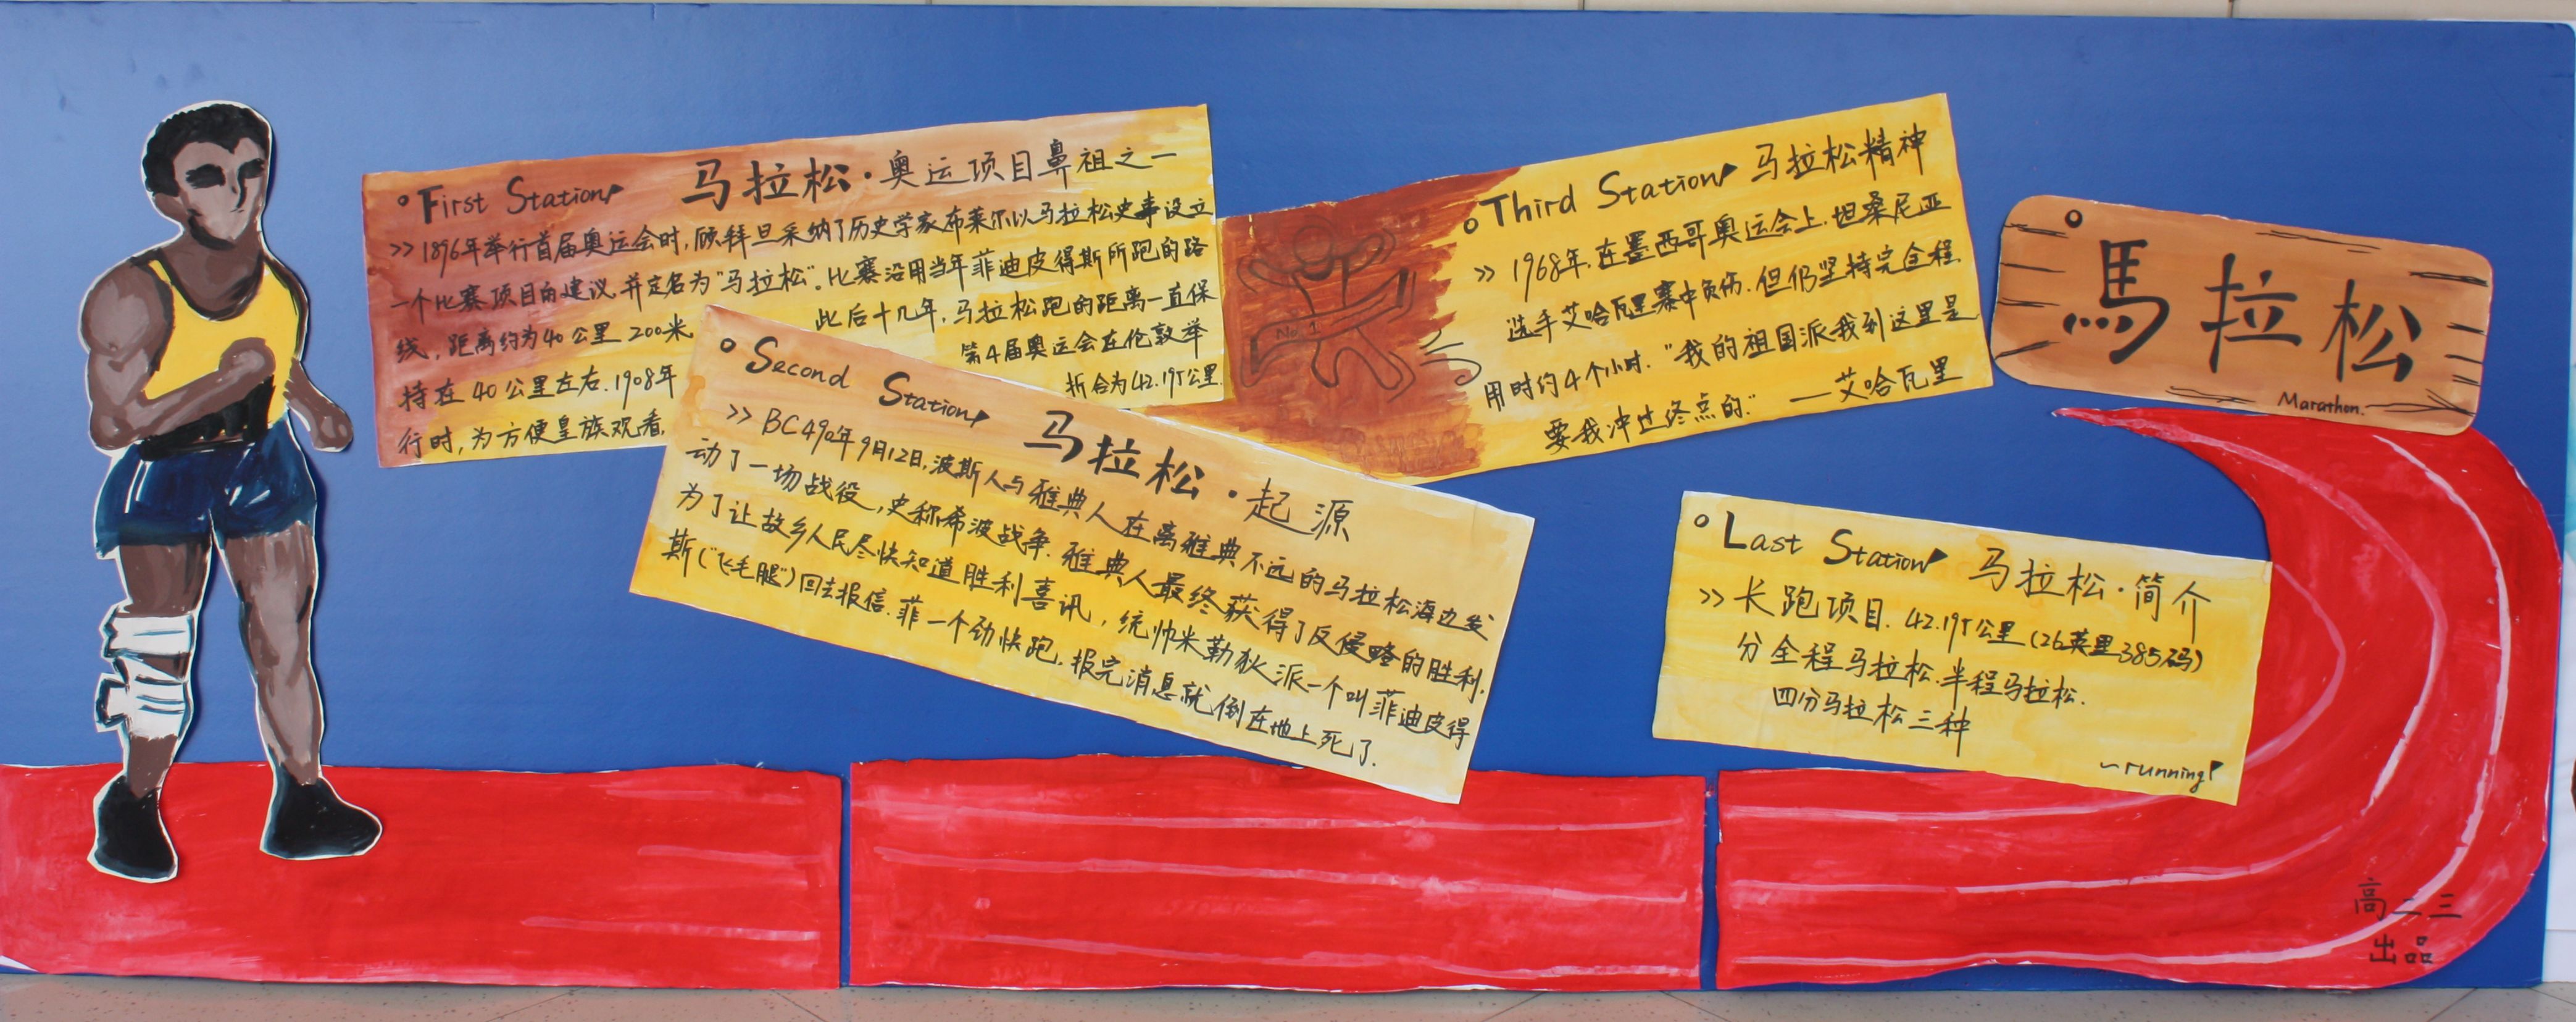 First Station 马拉松·奥运项目鼻祖之一
>> 1896年举行首届奥运会时,顾拜旦采纳了历史学家布莱尔以马拉松史事设立
一个比赛项目的建议,并定名为"马拉松"。比赛沿用当年菲迪皮得斯所跑的路
线,距离约为40公里200米 此后十几年,马拉松跑的距离一直保
持在40公里左右.1908年 第4届奥运会在伦敦举
行时,为方便皇族观看, 折合为42.195公里.
Second Station 马拉松·起源
>> BC490年9月12日,波斯人与雅典人在离雅典不远的马拉松海边发
动了一场战役,史称希波战争.雅典人最终获得了反侵略的胜利.
为了让故乡人民尽快知道胜利喜讯,统帅米勒狄派一个叫菲迪皮得
斯("飞毛腿")回去报信.菲一个劲快跑.报完消息就倒在地上死了.
No.1
Third Station 马拉松精神
>> 1968年.在墨西哥奥运会上.坦桑尼亚
选手艾哈瓦里赛中负伤.但仍坚持完全程.
用时约4个小时."我的祖国派我到这里是
要我冲过终点的." —艾哈瓦里
馬拉松
Marathon.
Last Station 马拉松·简介
>> 长跑项目.42.195公里(26英里385码)
分全程马拉松.半程马拉松.
四分马拉松三种
~running
高二三
出品